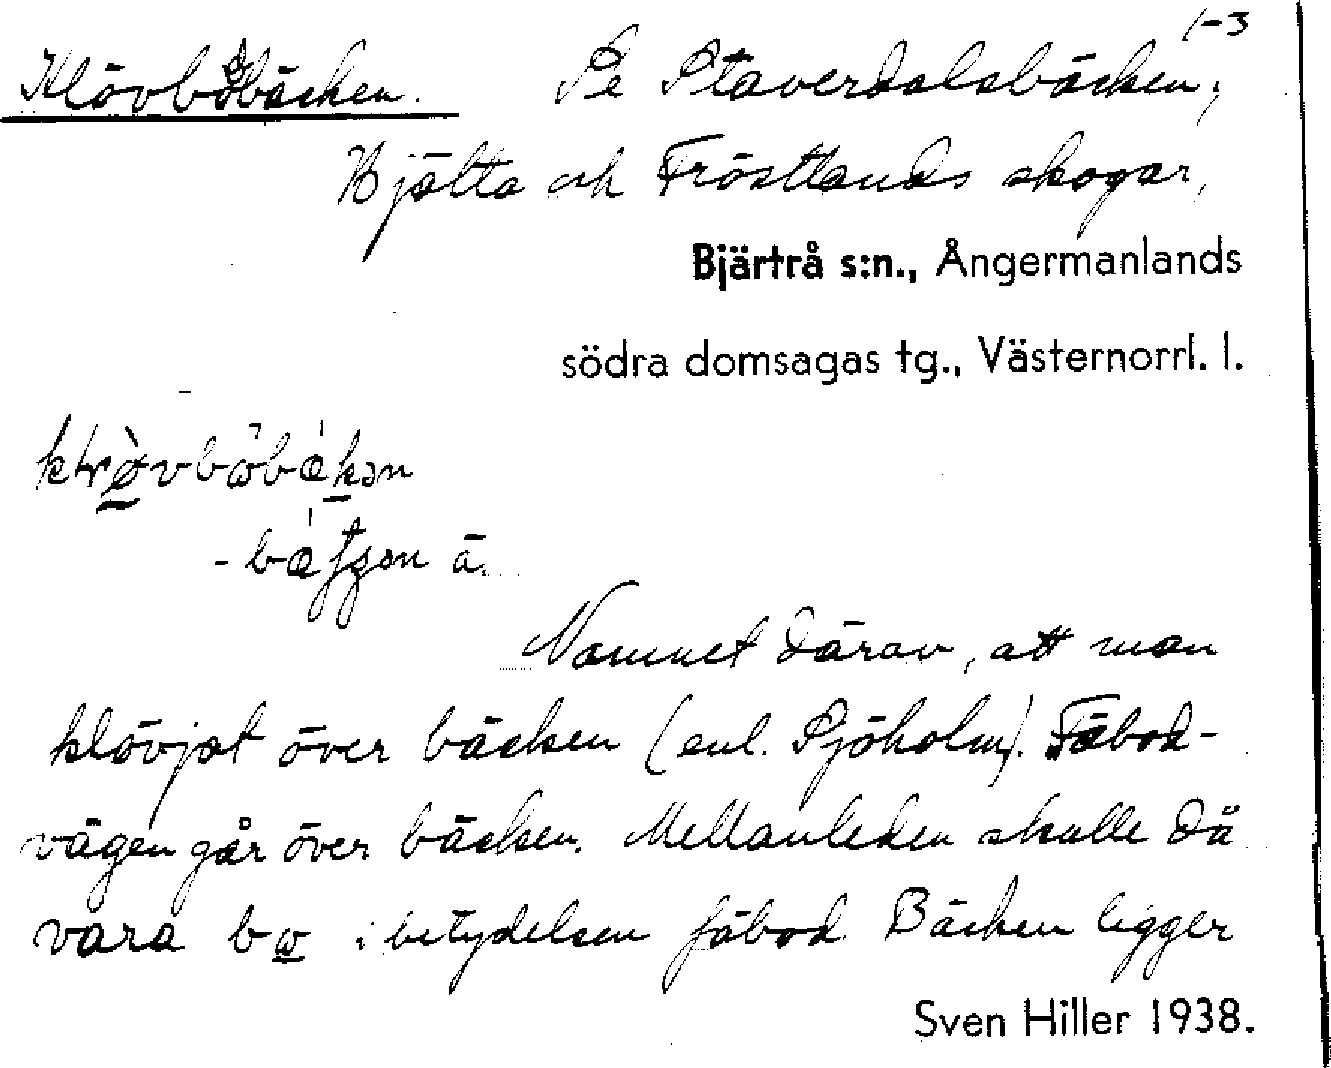 1-3
Klövbobäcken. Se Staverdalsbäcken;
Hjälta och Fröstlands skogar,
Bjärtrå s:n., Ångermanlands
södra domsagas tg., Västernorrl. l.
Namnet därav, att man
klövjat över bäcken (enl. Sjöholm). Fäbod-
vägen går över bäcken. Mellanleden skulle då
vara bω i betydelsen fäbod. Bäcken ligger
Sven Hiller 1938.